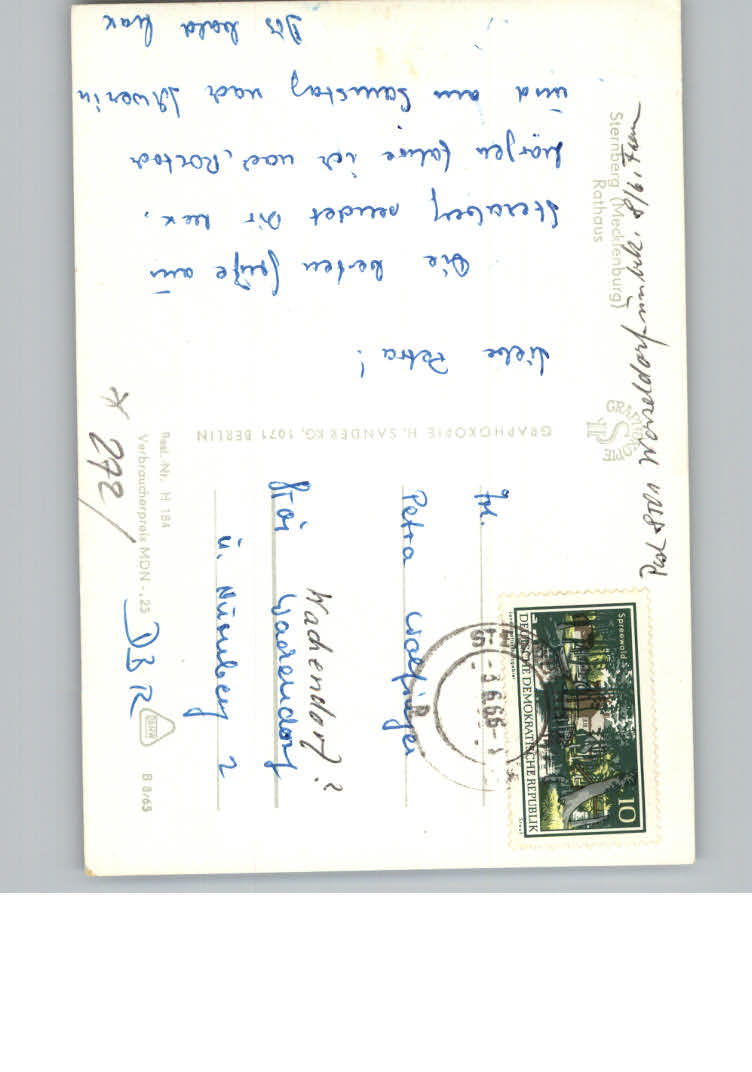 Sternberg (Mecklenburg)
Rathaus
Liebe Petra!
Die besten Grüße aus
Sternberg sendet Dir Max.
Morgen fahre ich nach Rostock
und am Samstag nach Schwerin
Bis bald Max
GRAPHOKOPIE H. SANDER KG, 1071 BERLIN
GRAPHOKOPIE
HS
Best.-Nr. H 184
Verbraucherpreis MDN -,25
B 8/65
272
Frl.
Petra
Wachendorf?
Wachendorf
ü. Nürnberg 2
DBR
Spreewald
DEUTSCHE DEMOKRATISCHE REPUBLIK
10
-3.6.66-
8/6.